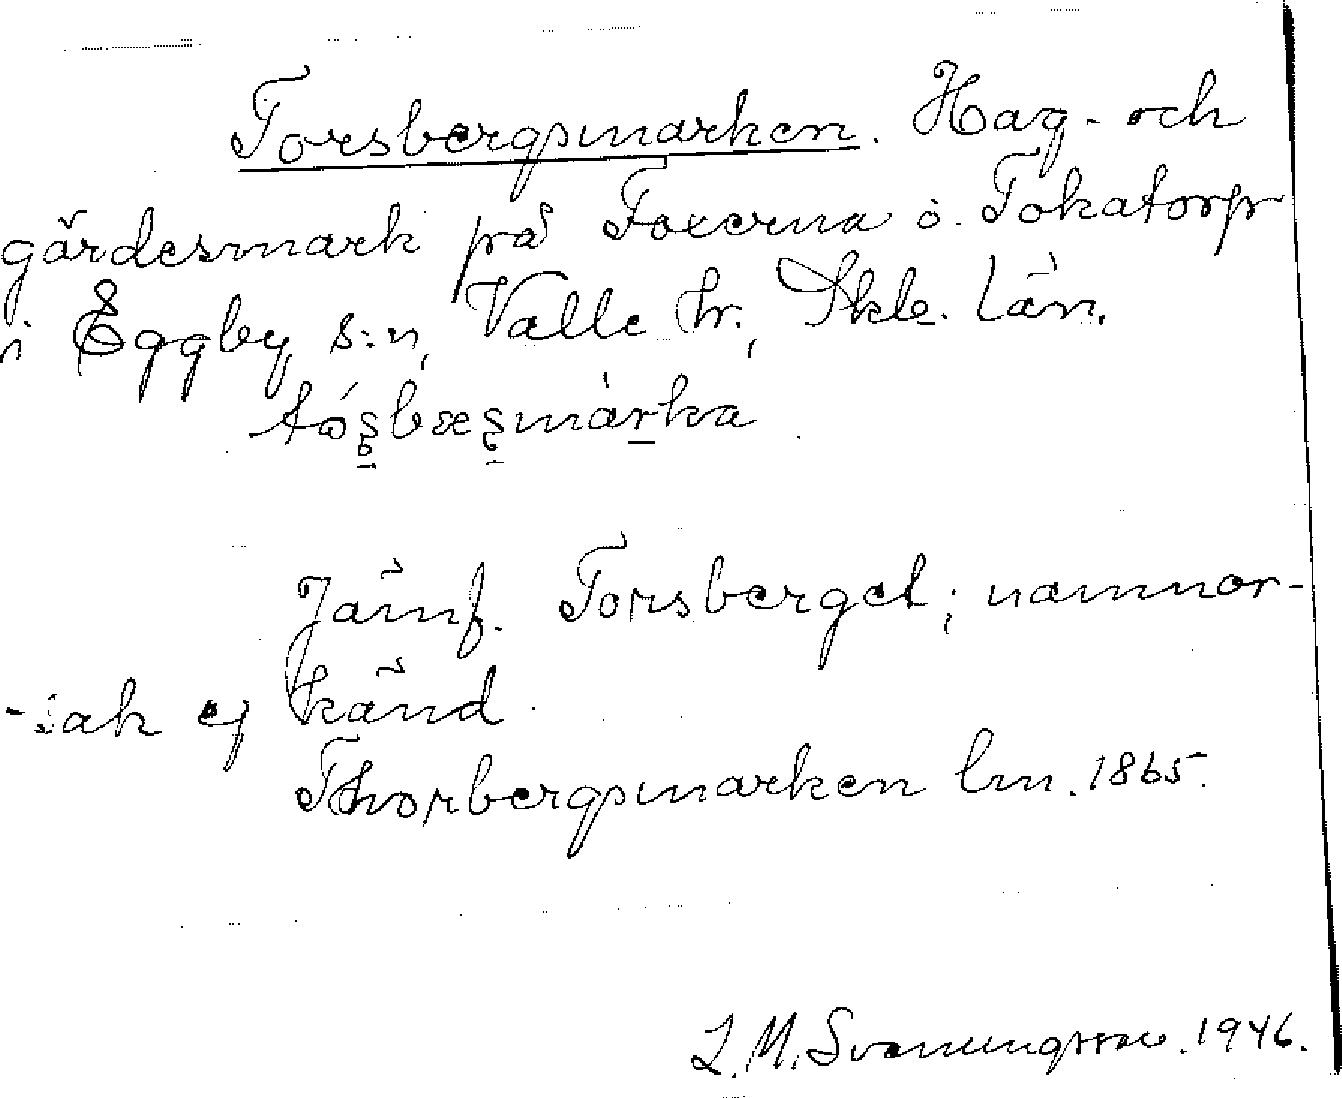 Torsbergsmarken. Hag- och
gärdesmark på Foxerna o. Tokatorp
i Eggby s:n, Valle hr., Skb. län.
tósbæsmàrka
Jämf. Torsberget; namnor-
-sak ej känd.
Thorbergsmarken lm. 1865.
L. M. Svanungsson. 1946.